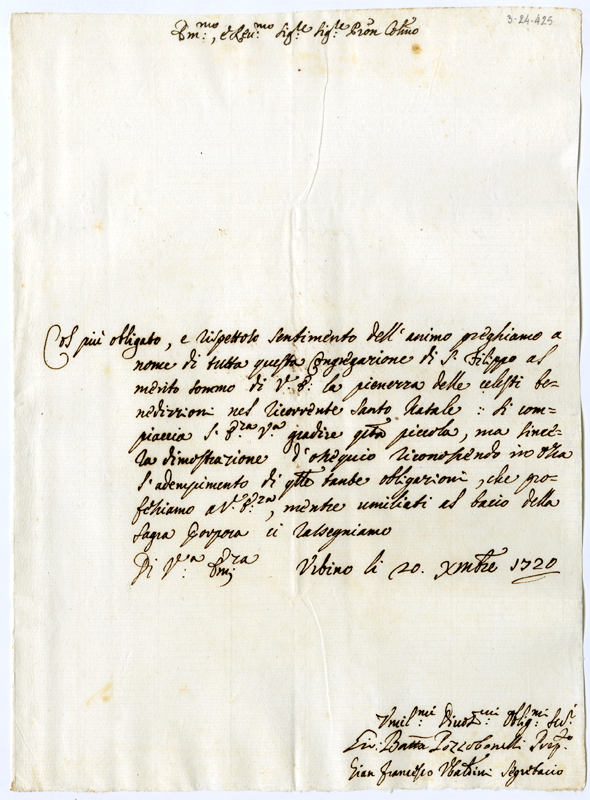 3-24-425
Em:mo, e Reu:mo Sig:re Sig:re Pron Colmo
Col più obligato, e rispettoso sentimento dell' animo preghiamo a
nome di tutta questa Congregazione di S. Filippo al
merito sommo di V:E: la pienezza delle celesti be=
nedizzioni nel ricorrente Santo Natale :: Si com=
piaccia l' E:ra V:a gradire qta piccola, ma since=
ra dimostrazione d'ossequio riconoscendo in essa
l'adempimento di qlle tante obligazioni, che pro=
fessiamo a V:E:ra, mentre umiliati al bacio della
Sagra Porpora ci rassegniamo
Di V:a E:ra
Em: Urbino li 20. Xmbre 1720
Umil:mi Diuot:mi Oblig:mi Ser:i
Gio: Batta Pozzobonelli Prep:to
Gian Francesco Ubaldini Segretario